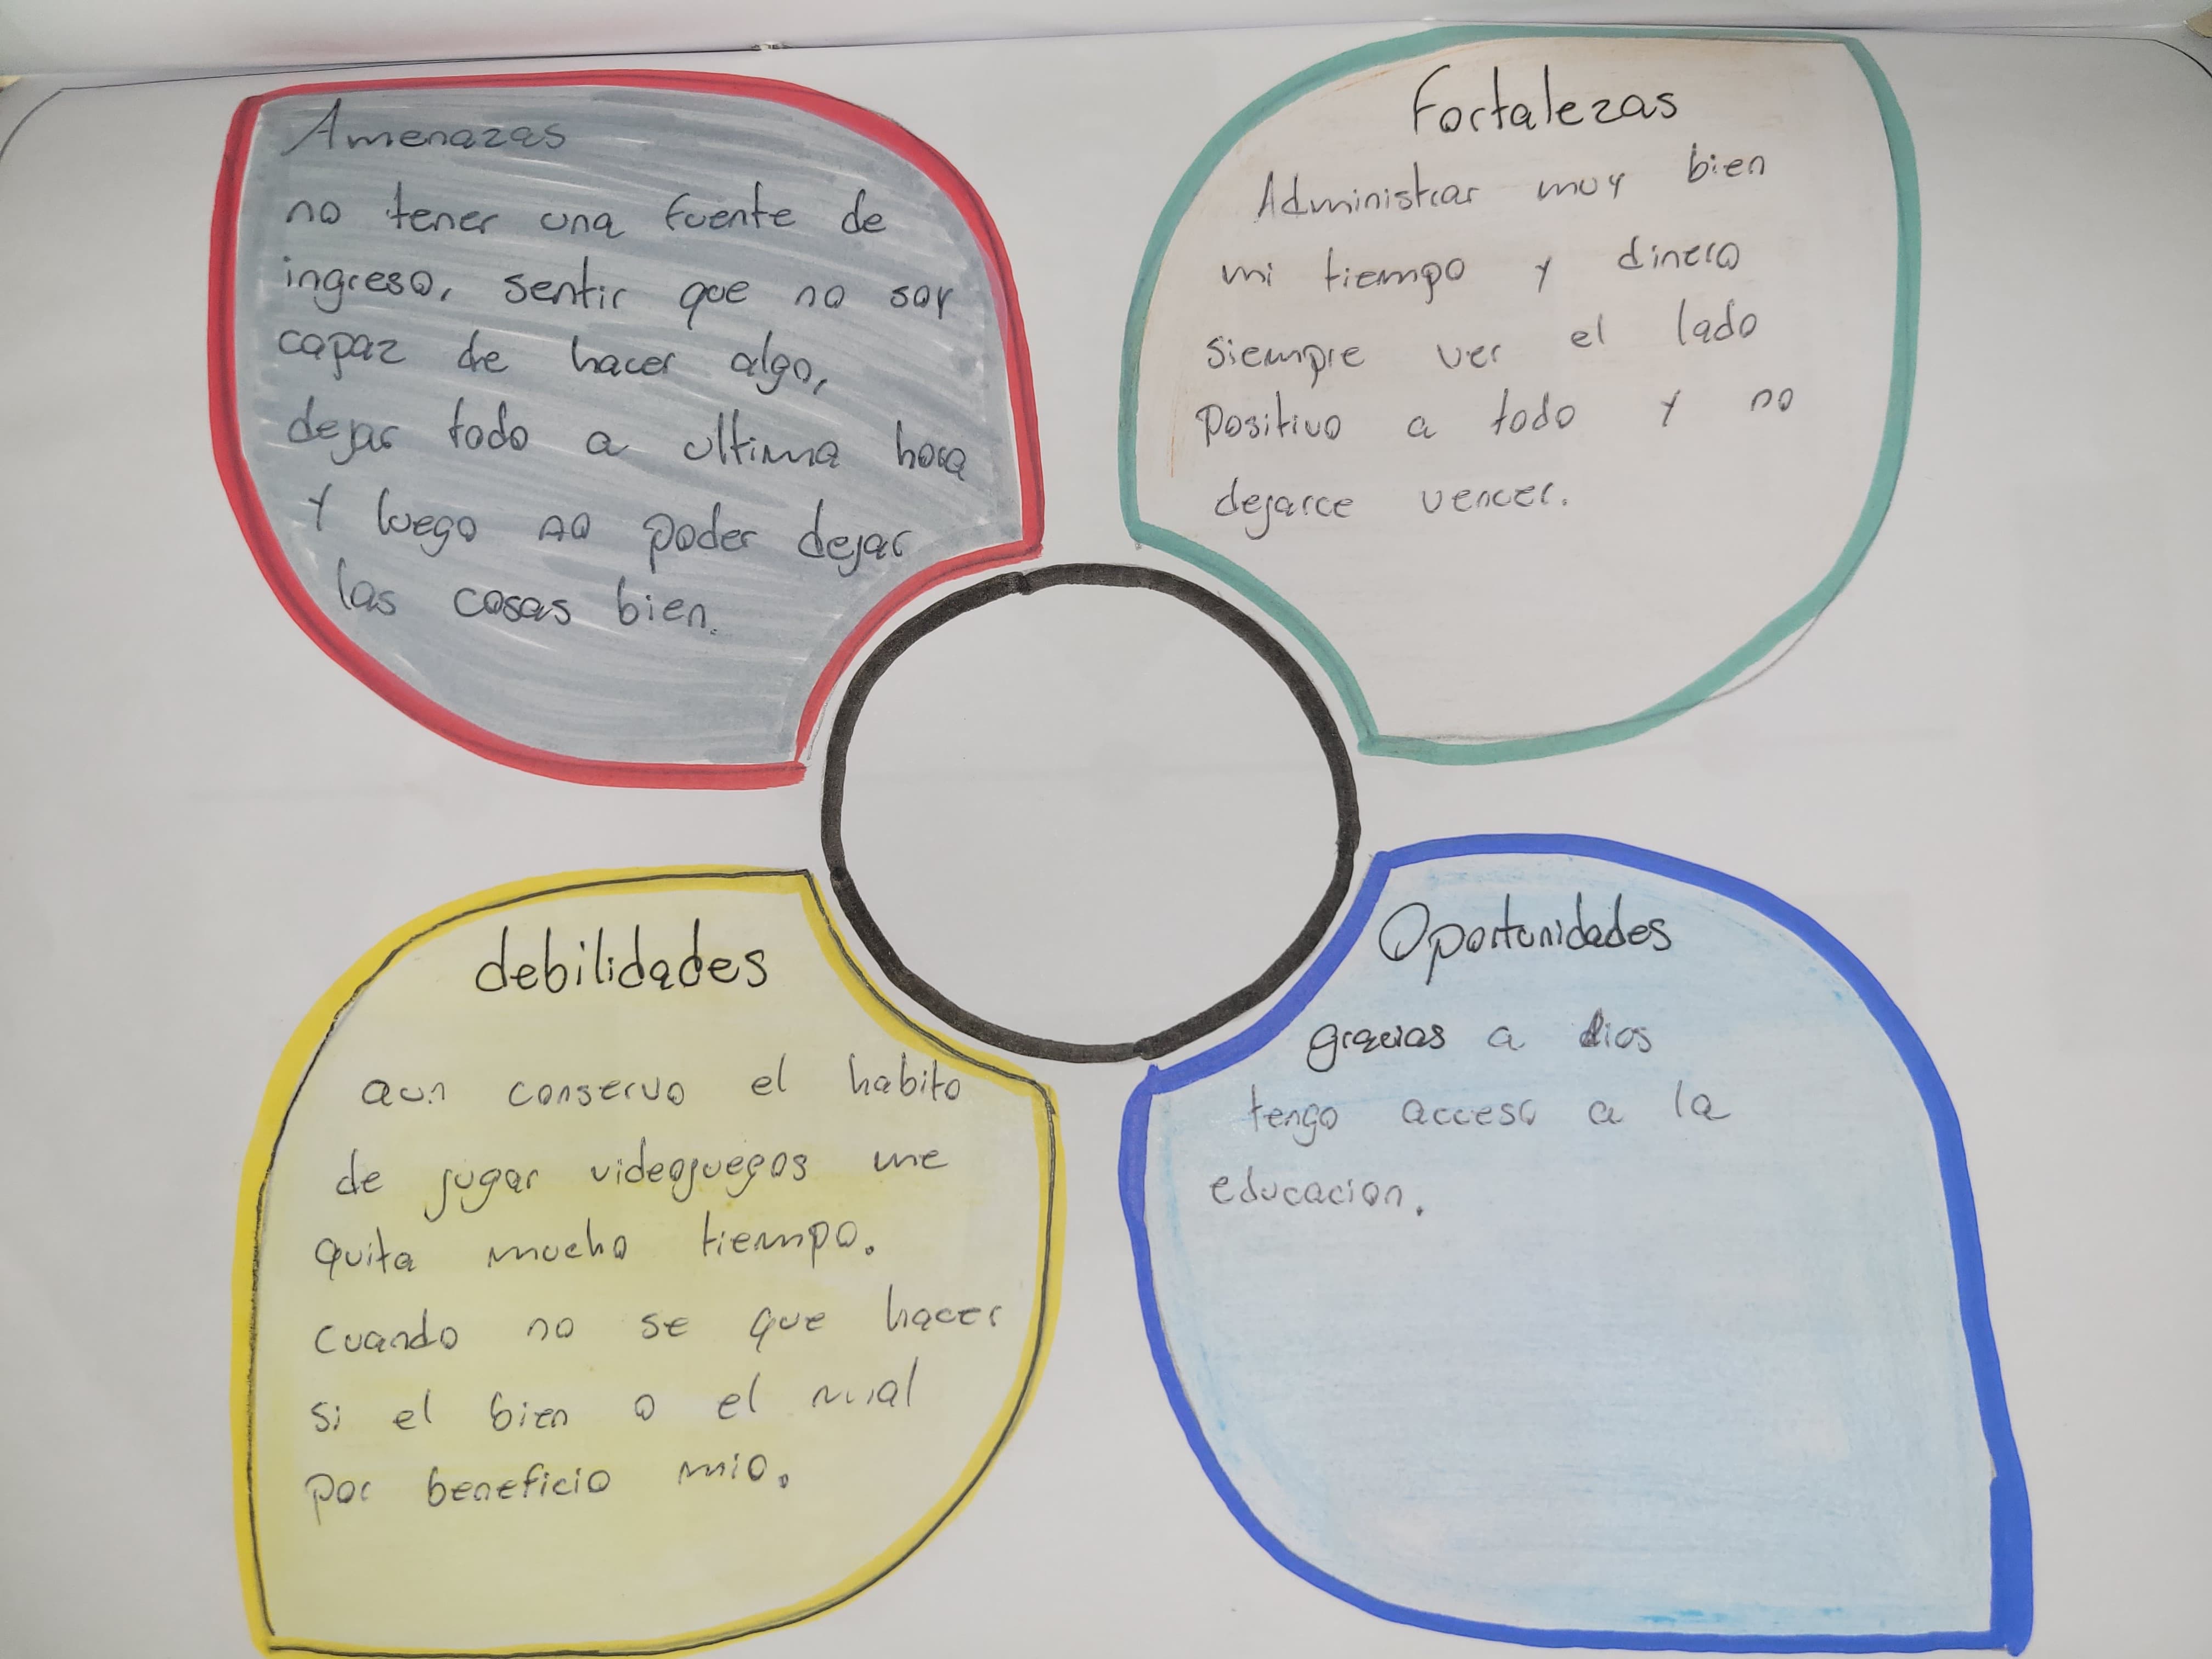 Amenazas
no tener una fuente de
ingreso, sentir que no soy
capaz de hacer algo,
dejar todo a ultima hora
y luego no poder dejar
las cosas bien.
Fortalezas
Administrar muy bien
mi tiempo y dinero
siempre ver el lado
Positivo a todo y no
dejarce vencer.
debilidades
aun conservo el habito
de jugar videojuegos me
quita mucho tiempo.
cuando no se que hacer
si el bien o el mal
por beneficio mio.
Oportunidades
gracias a dios
tengo acceso a la
educacion.